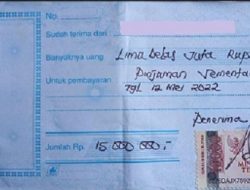 No.
Sudah terima dari
Banyaknya uang Lima belas Juta Rup
Untuk pembayaran Pinjaman Sementa
Tgl 12 Mei 2022
Penerima
Jumlah Rp. 15.000.000,-